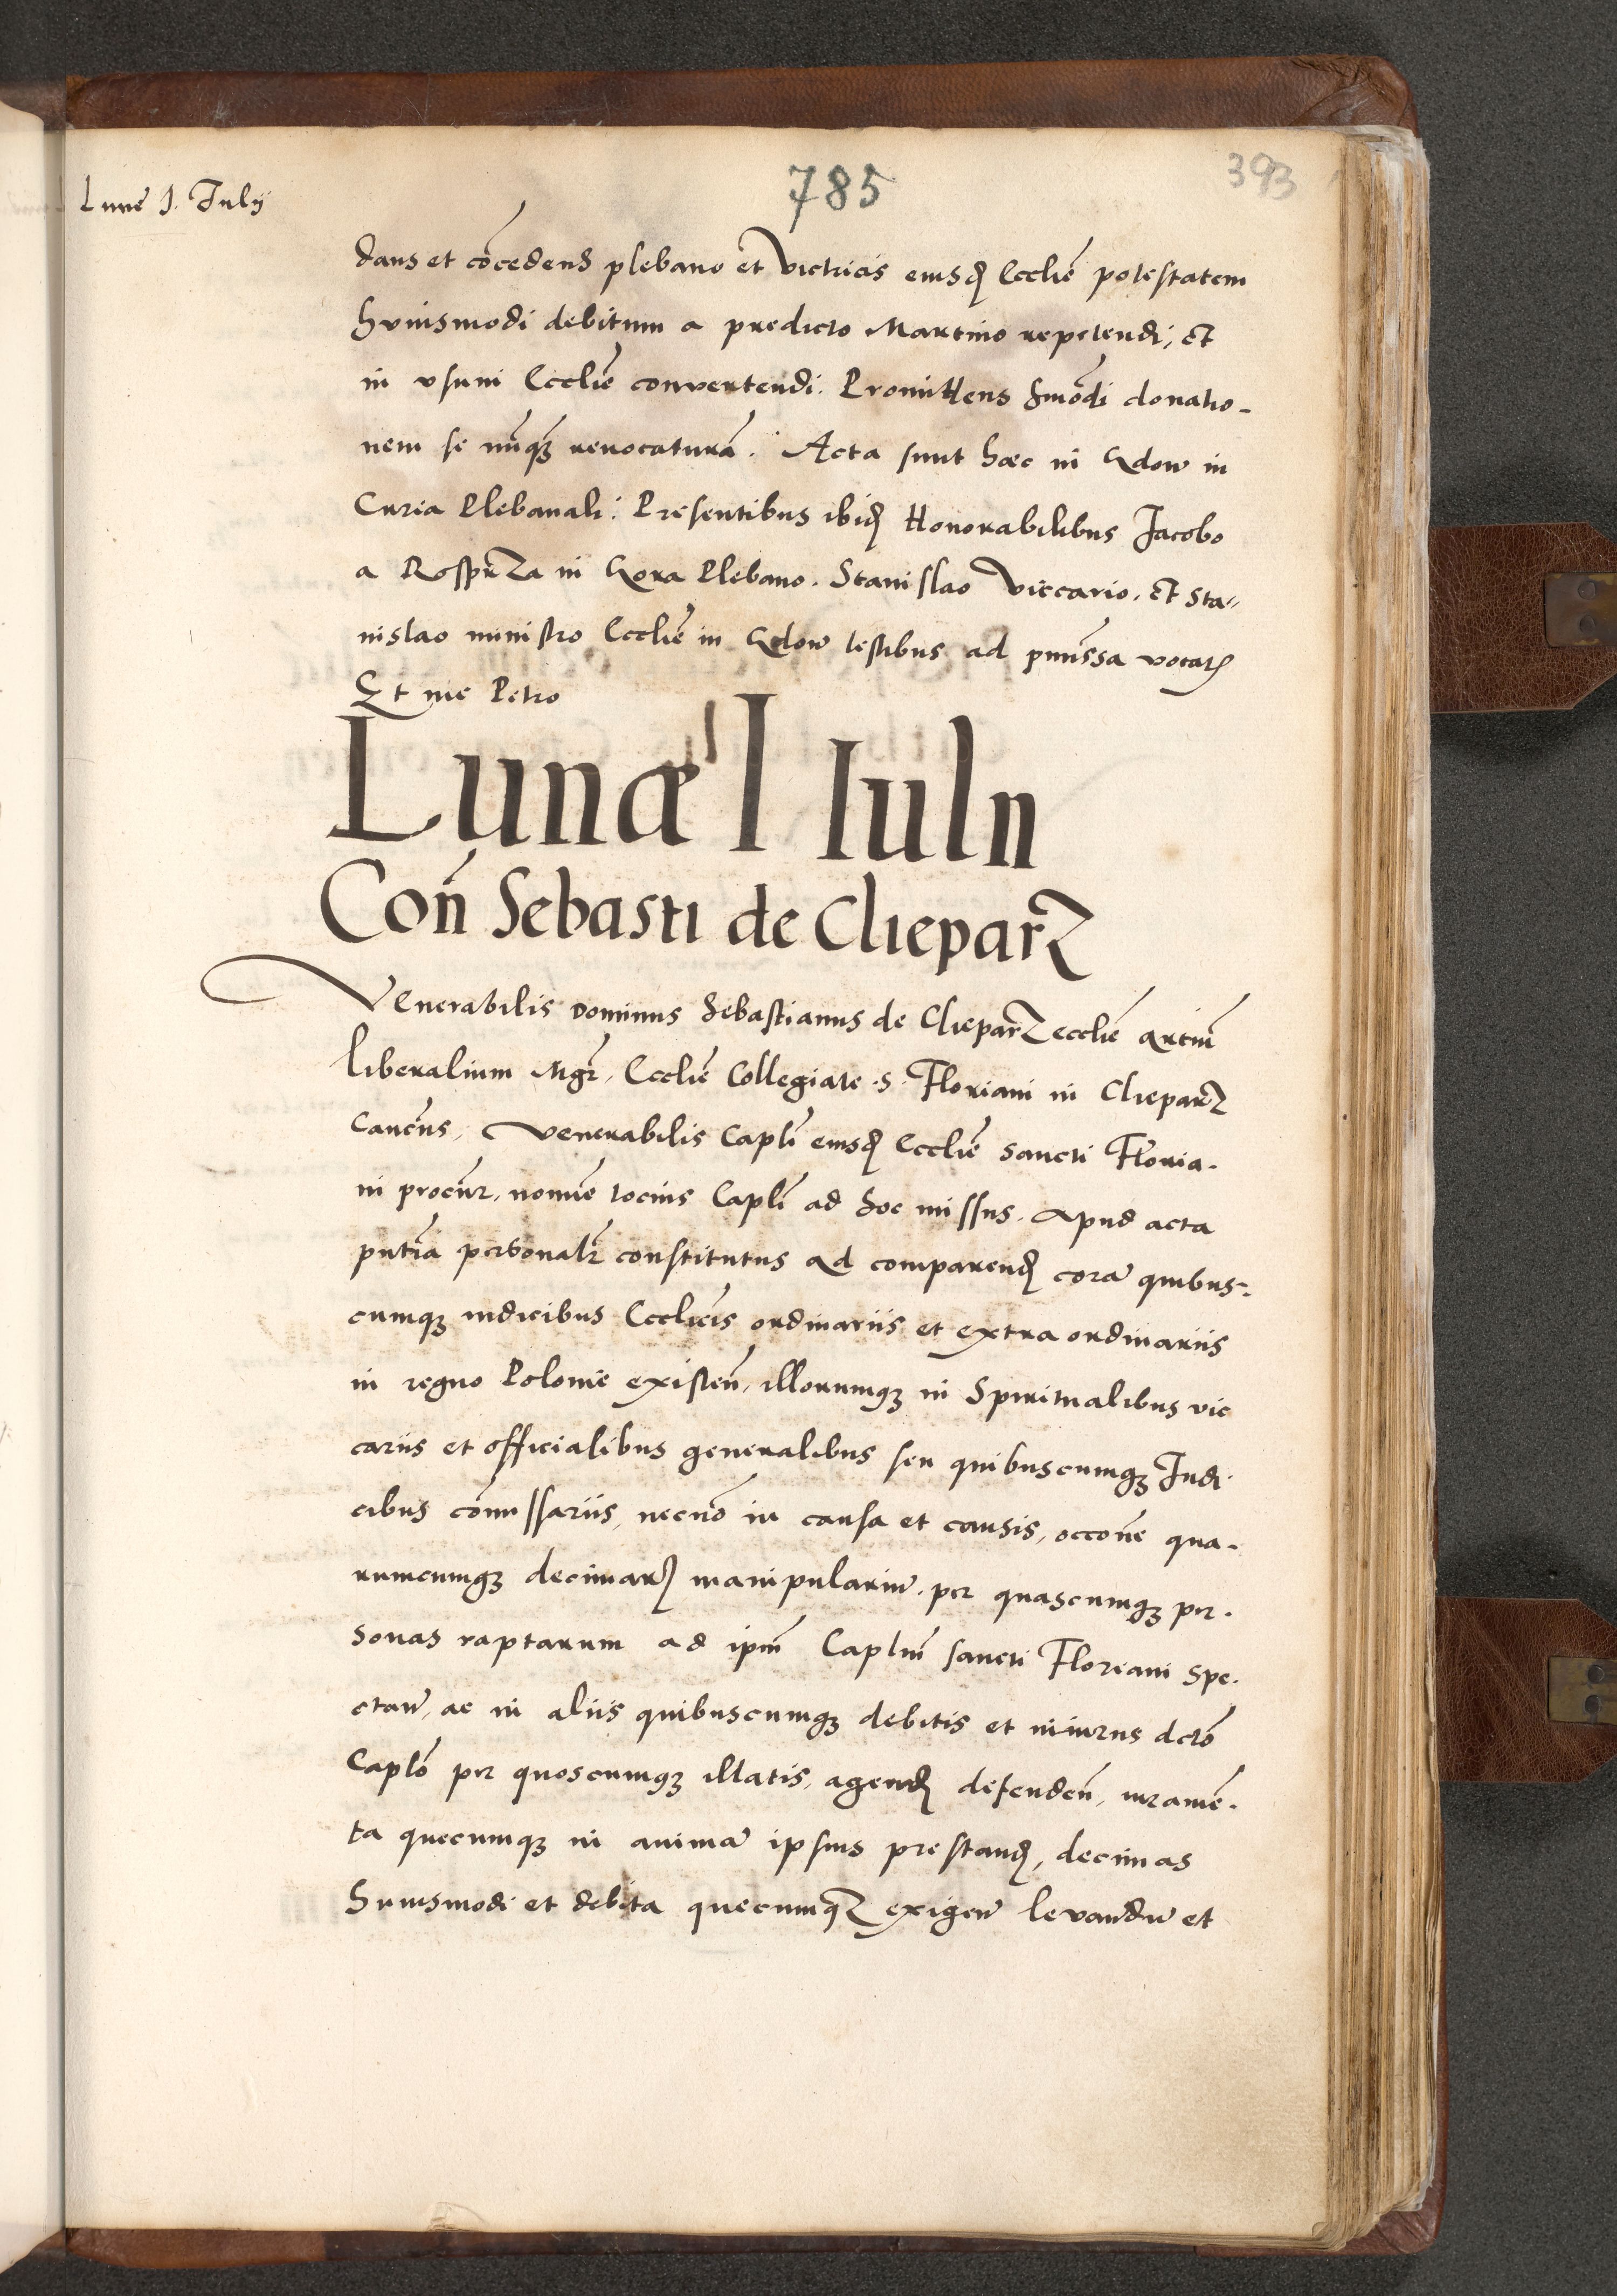 Lune 1. Julÿ
785
393
dans et cōcedens plebano et victricis eiusdꝫ Eccliē potestatem
huiusmodi debitum a predicto Martino repetendi, Et
in vsum Eccliē convertendi. Promittens hmōdi donatio-
nem se nūqꝫ revocaturā. Acta sunt hæc in Gdow in
Curia Plebanali: Presentibus ibidꝫ Honorabilibus Jacobo
a Rosprza in Gora Plebano. Stanislao viccario. Et Sta-
nislao ministro Eccliē in Gdow testibus ad pmissa vocatꝭ
Et me Petro
Lunæ I Iulii
Con̄ Sebasti de Clieparz
Venerabilis Dominus Sebastianus de Clieparz ecclīe Artiū
liberalium Mgr̄, Eccliē Collegiate .S. Floriani in Clieparz
Canc̄us, venerabilis Caplī eiusdꝫ Eccliē sancti Floria-
ni procūr, nomīe tocius Caplī ad hoc missus. Apud acta
pn̄tia personalr̄ constitutus ad comparendꝫ corā quibus-
cumqꝫ iudicibus Eccliēis ordinariis et extra ordinariis
in regno Poloniē existen̄, illorumqꝫ in Spiritualibus vic
cariis et officialibus generalibus seu quibuscumqꝫ Judi-
cibus cōmissariis, necnō in causa et causis, occōne qua-
rumcumqꝫ decimarꝫ manipulariū. per quascumqꝫ per-
sonas raptarum ad ipm̄ Caplūm sancti Floriani spe-
ctan̄, ac in aliis quibuscumqꝫ debitis et iniuriis dctō
Caplō per quoscumqꝫ illatis, agendꝫ defenden̄, iuramē-
ta quecumqꝫ in animā ipsius prestandꝫ, decimas
huiusmodi et debita quecumqꝫ exigen̄ levandū et